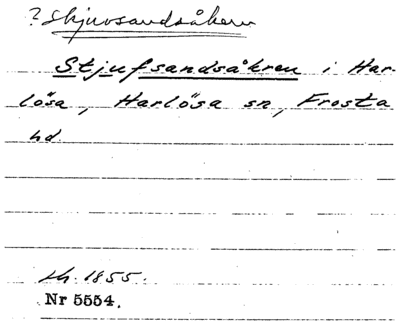 ? Skjuvsandsåkern
Stjufsandsåkren i Har-
lösa, Harlösa sn, Frosta
hd
sk. 1855.
Nr 5554.